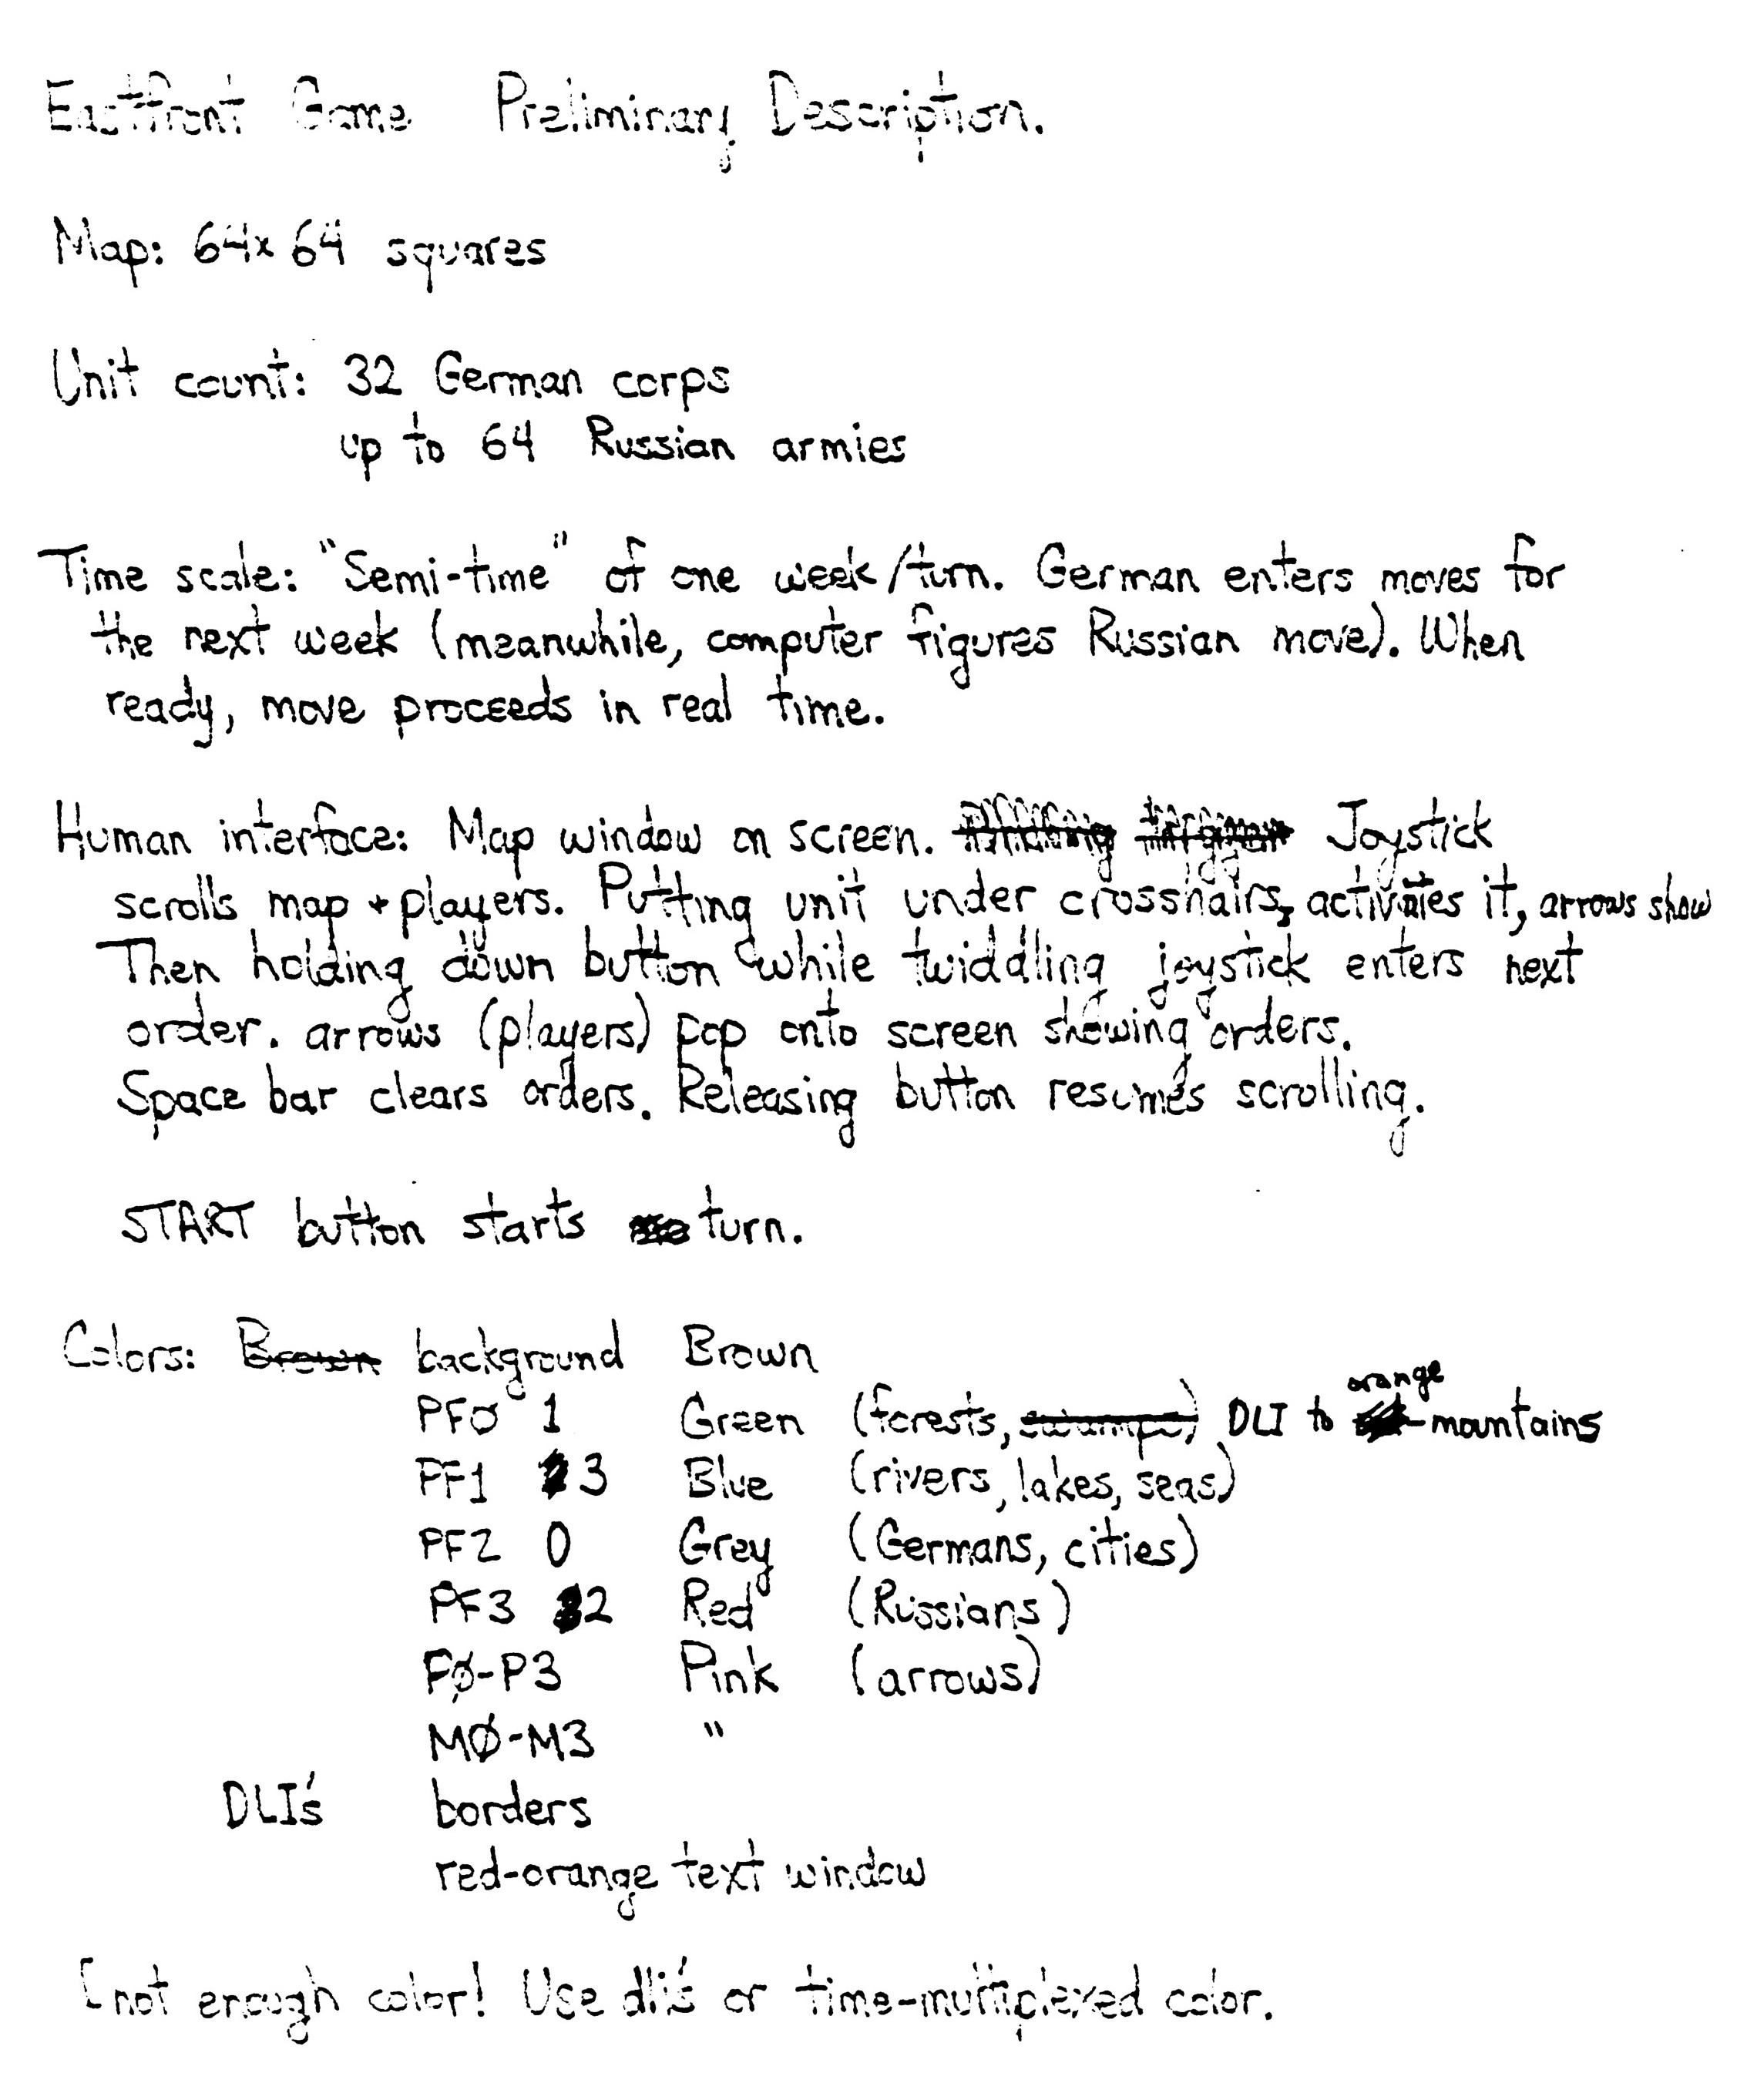 Eastfront Game Preliminary Description.
Map: 64x64 squares
Unit count: 32 German corps
up to 64 Russian armies
Time scale: "Semi-time" of one week/turn. German enters moves for
the next week (meanwhile, computer figures Russian move). When
ready, move proceeds in real time.
Human interface: Map window on screen. Joystick
scrolls map + players. Putting unit under crosshairs, activates it, arrows show
Then holding down button while twiddling joystick enters next
order. arrows (players) pop onto screen showing orders.
Space bar clears orders. Releasing button resumes scrolling.
START button starts turn.
Colors: Brown background Brown
orange
PFØ 1 Green (forests, swamps) DLI to mountains
PF1 3 Blue (rivers, lakes, seas)
PF2 0 Grey (Germans, cities)
PF3 2 Red (Russians)
PØ-P3 Pink (arrows)
MØ-M3 "
DLI's borders
red-orange text window
[not enough color! Use dli's or time-multiplexed color.